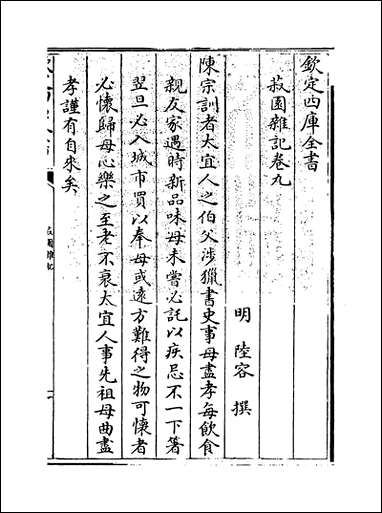 欽定四庫全書
菽園雜記卷九
明 陸容 撰
陳宗訓者太宜人之伯父涉獵書史事母盡孝每飲食
親友家遇時新品味母未嘗必託以疾忌不一下箸
翌旦必入城市買以奉母或遠方難得之物可懷者
必懷歸母心樂之至老不衰太宜人事先祖母曲盡
孝謹有自來矣
菽園雜記